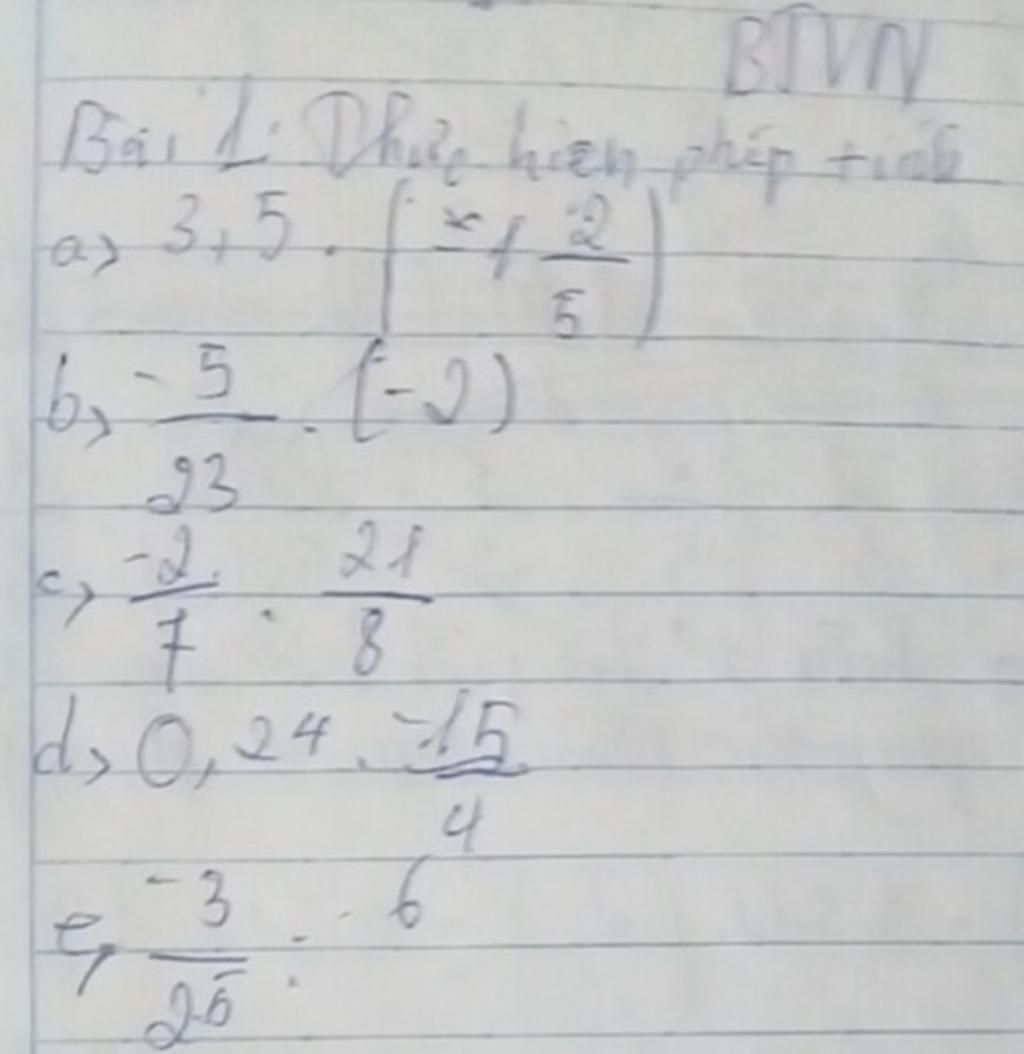 BTVN
Bài 1: Thực hiện phép tính
a) 3,5 . (-1 2/5)
b) -5/23 . (-2)
c) -2/7 . 21/8
d) 0,24 . -15/4
e) -3/25 : 6